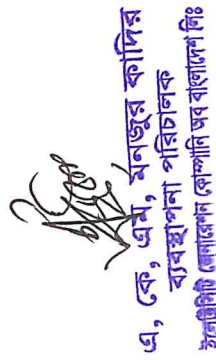 এ, কে, এম, মনজুর কাদির
ব্যবস্থাপনা পরিচালক
ইলেকট্রিসিটি জেনারেশন কোম্পানি অব বাংলাদেশ লিঃ